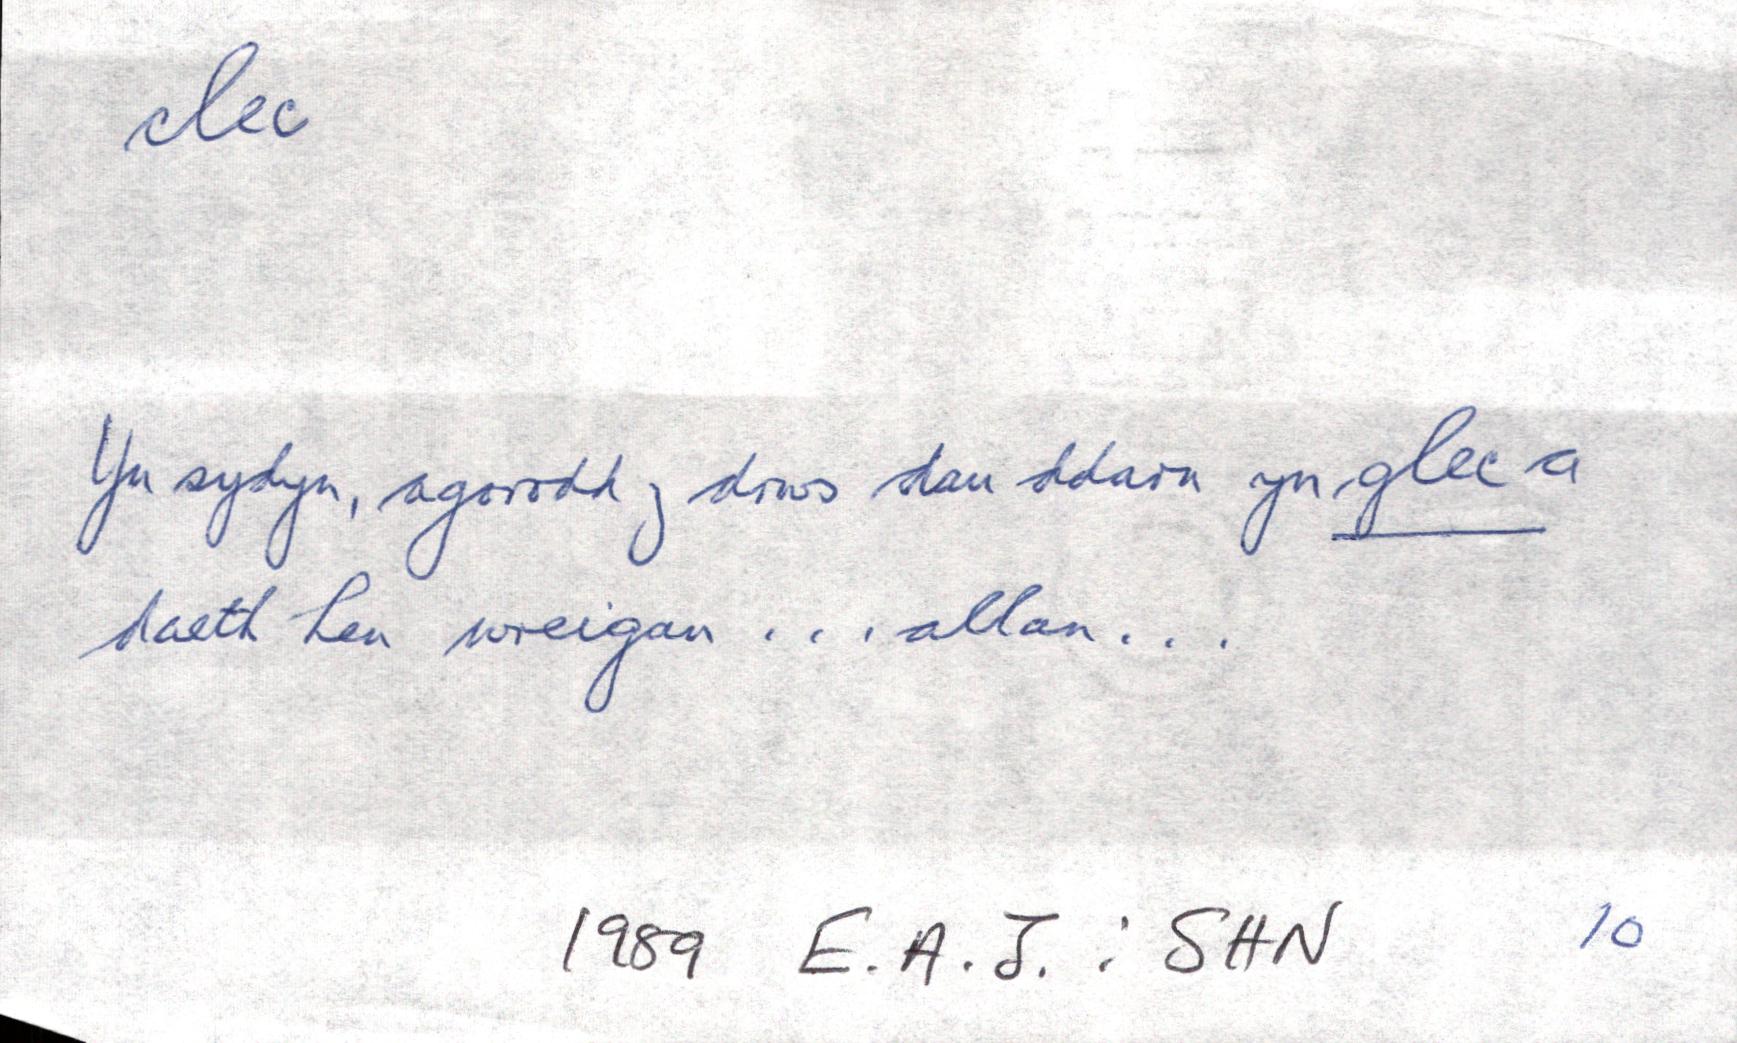 clec
Yn sydyn, agorodd y drws dau ddarn yn glec a
daeth hen wreigan . . . allan . . .
1989 E.A.J. : SHN 10